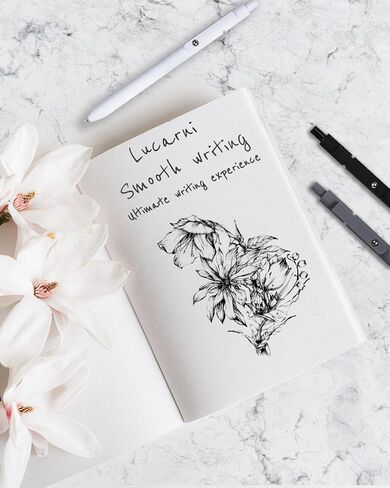 Lucarni
Smooth writing
Ultimate writing experience